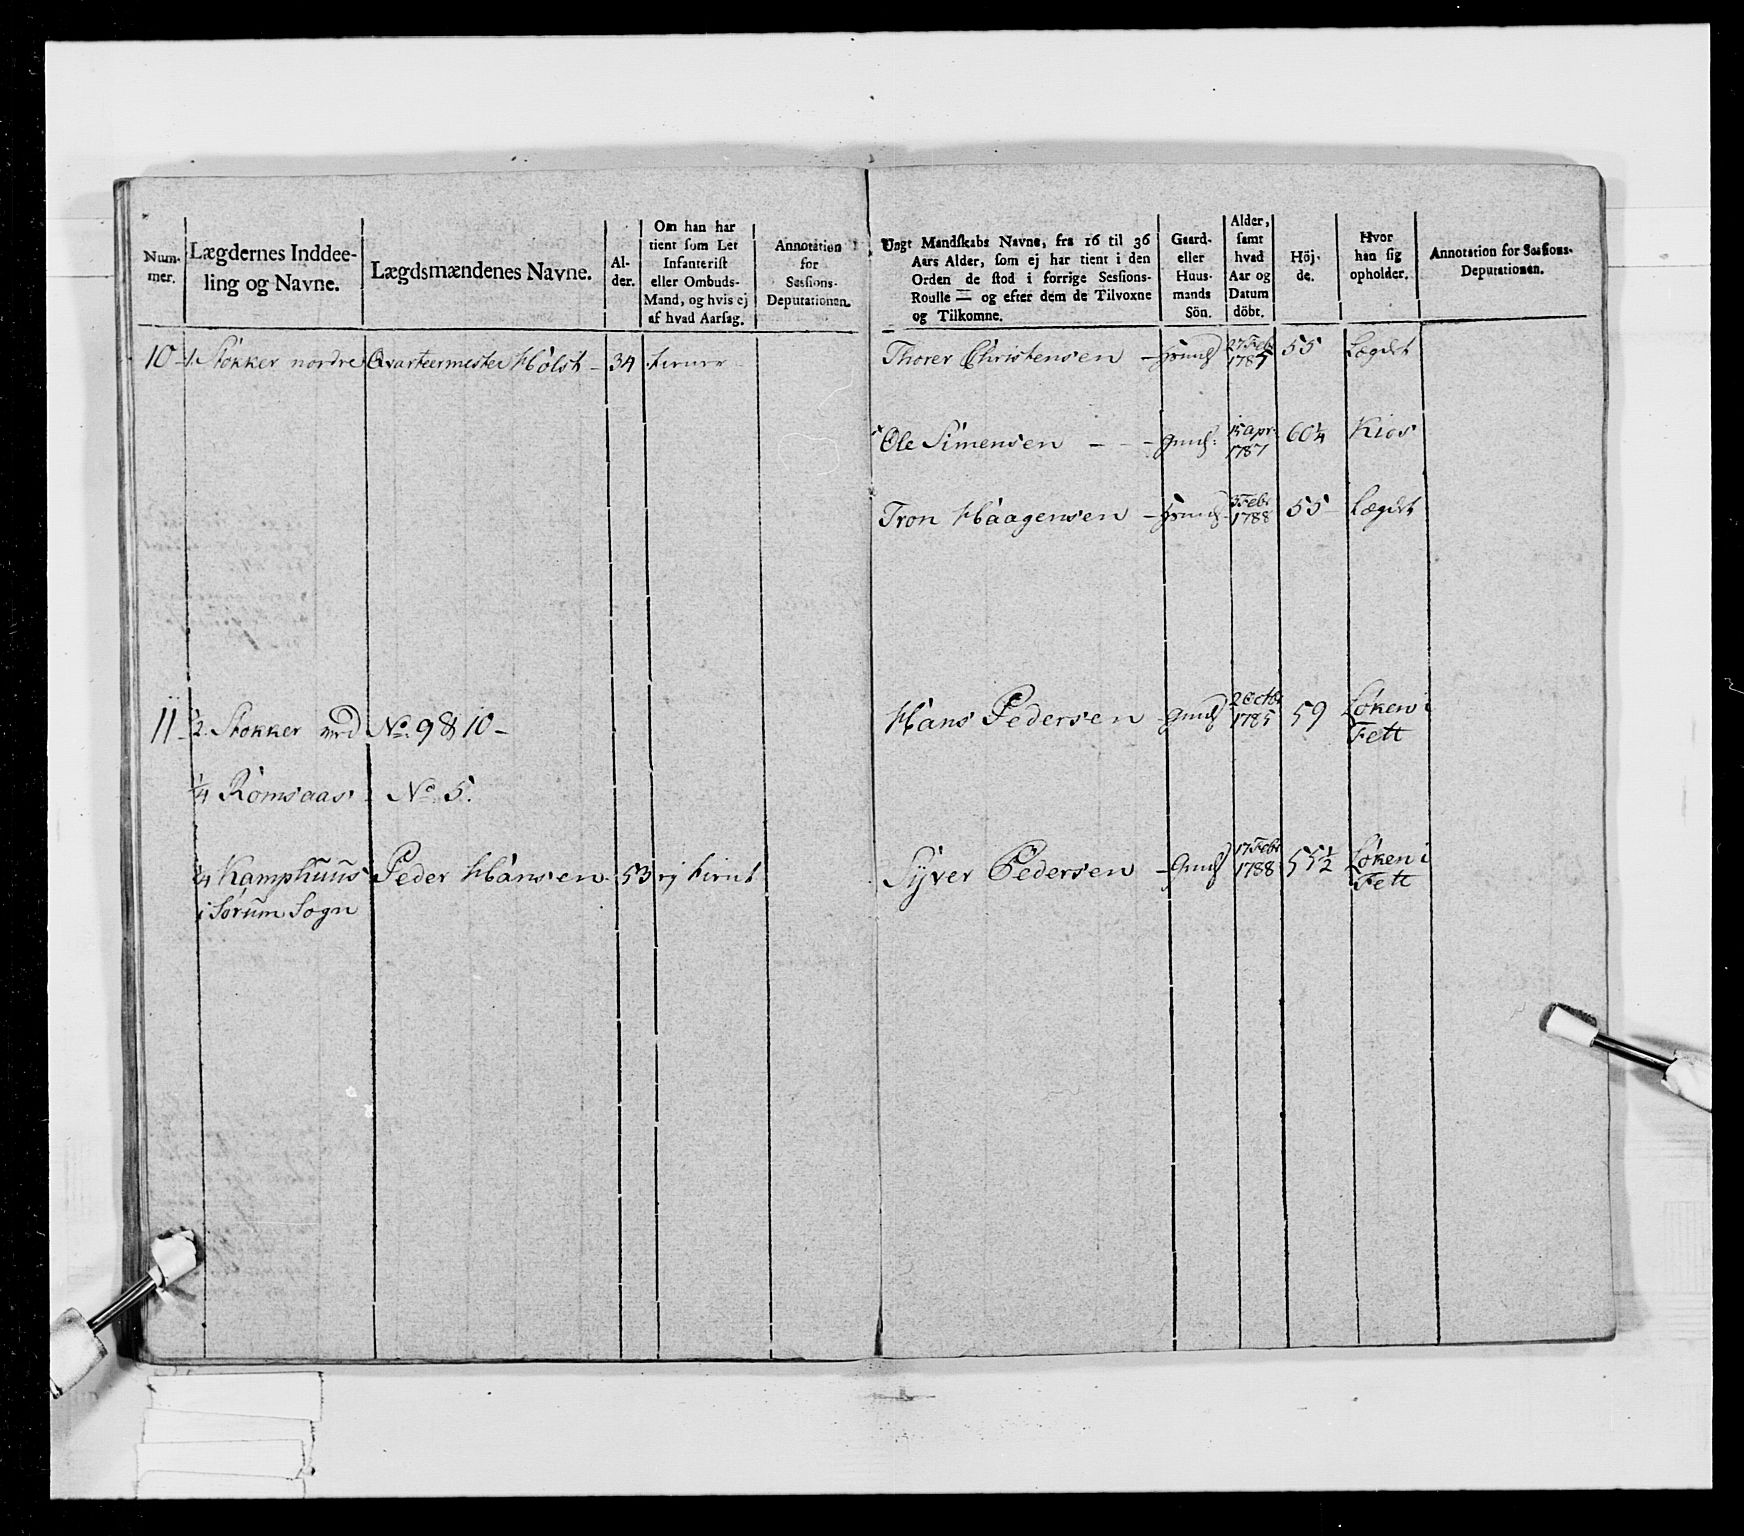 Num-
mer.
Lægdernes Inddee-
ling og Navne.
Lægdsmændenes Navne.
Al-
der.
Om han har
tient som Let
Infanterist
eller Ombuds-
Mand, og hvis ej
af hvad Aarsag.
Annotation
for
Sessions-
Deputationen.
Ungt Mandskabs Navne, fra 16 til 36
Aars Alder, som ej har tient i den
Orden de stod i forrige Sessions-
Roulle — og efter dem de Tilvoxne
og Tilkomne.
Gaard-
eller
Huus-
mands
Sön.
Alder,
samt
hvad
Aar og
Datum
döbt.
Höj-
de.
Hvor
han sig
opholder.
Annotation for Sessions-
Deputationen.
10 - 1. Stokker nordre Qvarteermester Holst - 34
Thorer Christensen - 27 Feb 1785 55 Lægdet
Ole Simensen - - - 15 Apr. 1787 60¼ Kios
Tron Haagensen - 3 Febr 1788 55 Lægdet
11 - ½ Stokker No. 9 & 10 -
Hans Pedersen - 2 Octbr 1785 59 Løken i
Fett
¼ Romsaas No 5.
¼ Kamphuus Peder Hansen 53 ej tient
i Sørum Sogn
Syver Pedersen - 17 Febr 1788 55½ Løken i
Fett